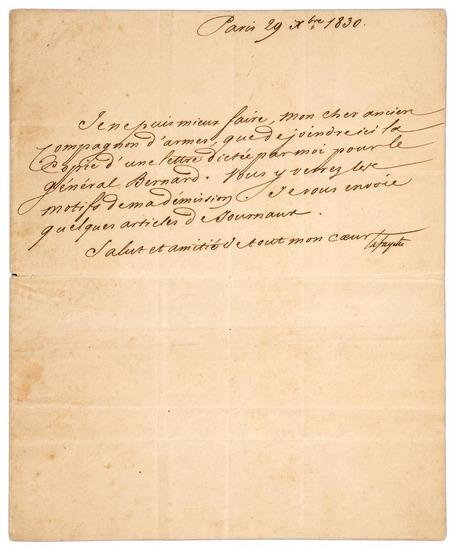 Paris 29 Xbre 1830.
Je ne puis mieux faire, mon cher ancien
compagnon d'armes, que de joindre ici la
Copie d'une lettre dictée par moi pour le
général Bernard. Vous y verrez les
motifs de ma démission. Je vous envoie
quelques articles de Journaux.
Salut et amitié de tout mon cœur
Lafayette